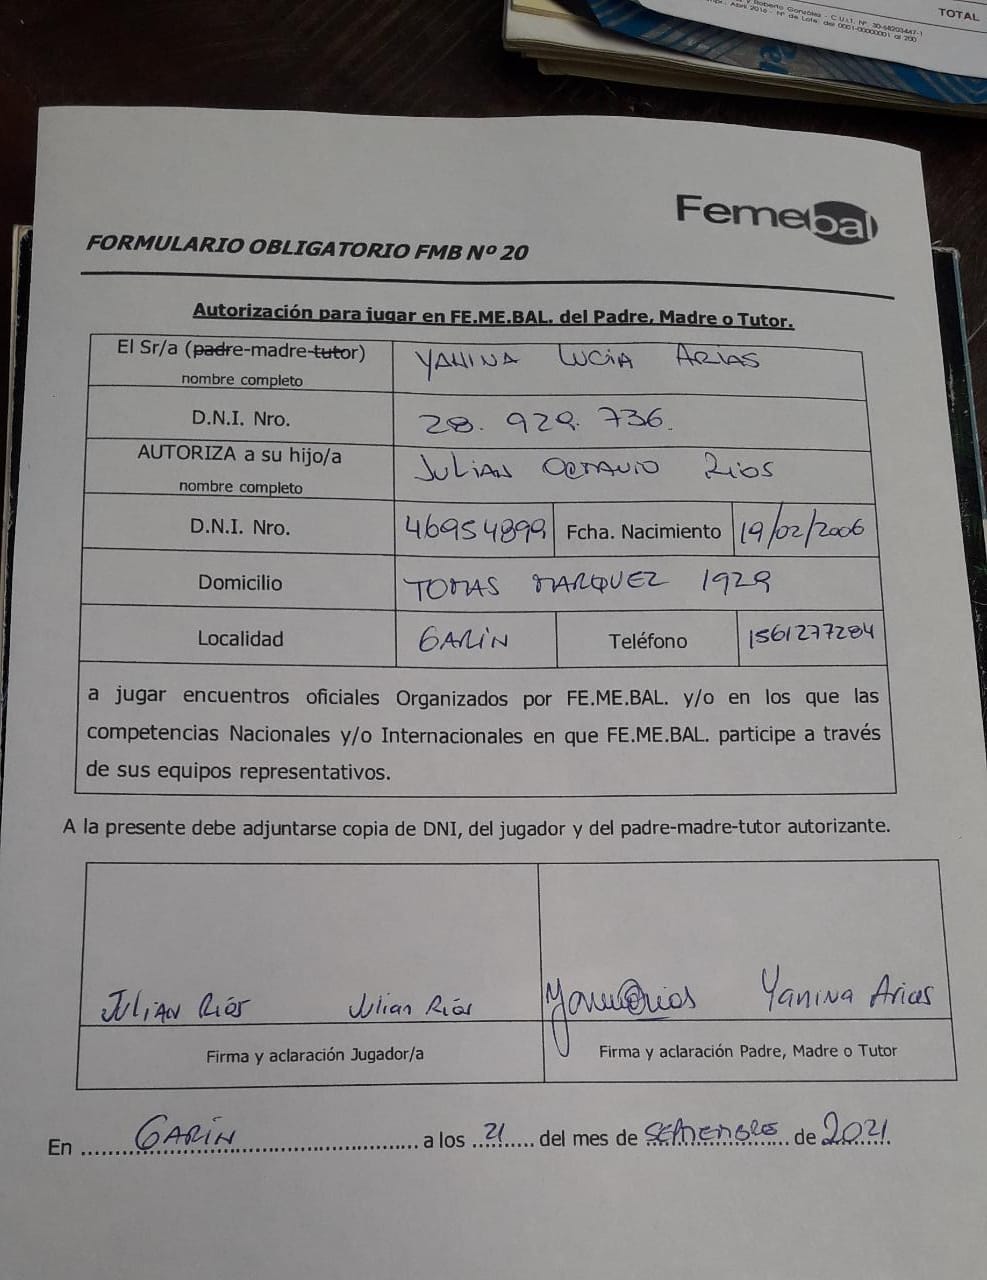 y Roberto González - C.U.I.T. Nº 30-68203447-1
Abril 2016 - Nº de Lote: del 0001-00000001 al 200
TOTAL
Femebal
FORMULARIO OBLIGATORIO FMB Nº 20
Autorización para jugar en FE.ME.BAL. del Padre, Madre o Tutor.
El Sr/a (padre-madre-tutor) YANINA LUCIA ARIAS
nombre completo
D.N.I. Nro. 28.929.736.
AUTORIZA a su hijo/a JULIAN OCTAVIO RIOS
nombre completo
D.N.I. Nro. 46954899 Fcha. Nacimiento 19/02/2006
Domicilio TOMAS MARQUEZ 1929
Localidad GARIN Teléfono 1561277284
a jugar encuentros oficiales Organizados por FE.ME.BAL. y/o en los que las
competencias Nacionales y/o Internacionales en que FE.ME.BAL. participe a través
de sus equipos representativos.
A la presente debe adjuntarse copia de DNI, del jugador y del padre-madre-tutor autorizante.
JULIAN Ríos Julian Ríos Yanina Arias
Firma y aclaración Jugador/a Firma y aclaración Padre, Madre o Tutor
En GARIN a los 21 del mes de SEPTIEMBRE de 2021